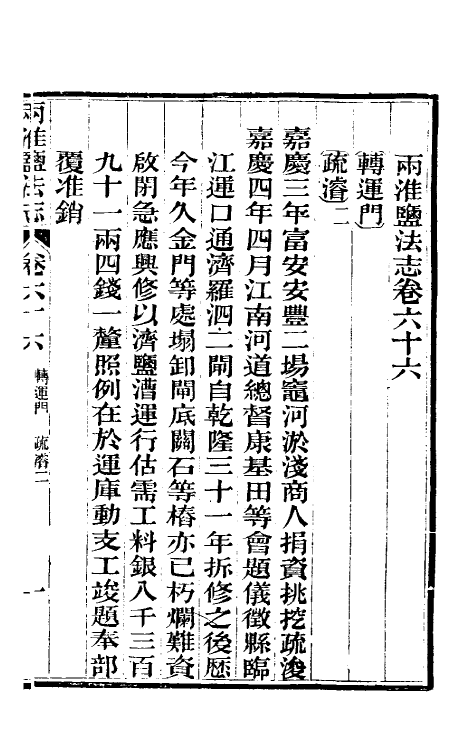 兩淮鹽法志卷六十六
轉運門
疏濬二
嘉慶三年富安安豐二場竈河淤淺商人捐資挑挖疏浚
嘉慶四年四月江南河道總督康基田等會題儀徵縣臨
江運口通濟羅泗二閘自乾隆三十一年拆修之後歷
今年久金門等處塌卸閘底關石等樁亦已朽爛難資
啟閉急應興修以濟鹽漕運行估需工料銀八千三百
九十一兩四錢一釐照例在於運庫動支工竣題奉部
覆准銷
兩淮鹽法志 卷六十六 轉運門 疏濬二 一